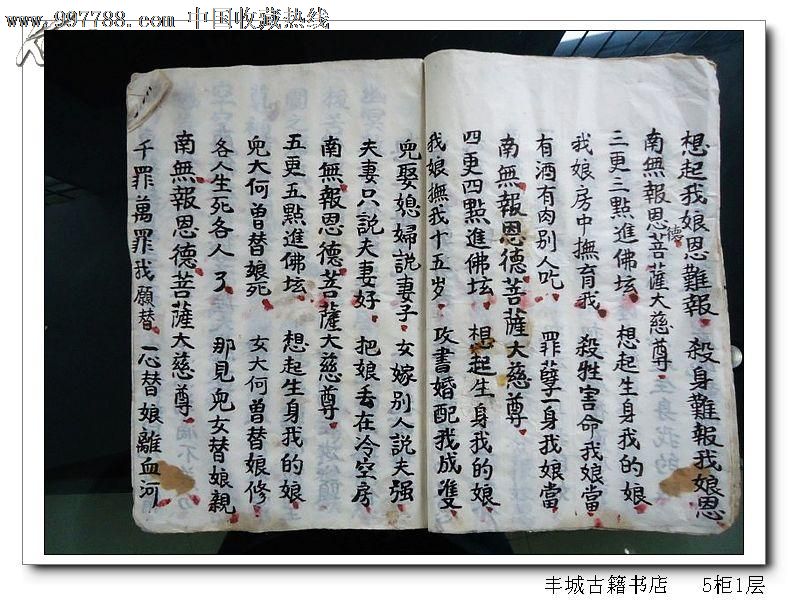 www.997788.com 中国收藏热线
想起我娘恩難報 殺身難報我娘恩
南無報恩德菩薩大慈尊
三更三點進佛坛 想起生身我的娘
我娘房中撫育我 殺牲害命我娘當
有酒有肉別人吃 罪孽一身我娘當
南無報恩德菩薩大慈尊
四更四點進佛坛 想起生身我的娘
我娘撫我十五岁 攻書婚配我成雙
兒娶媳婦說妻子 女嫁別人說夫强
夫妻只說夫妻好 把娘丢在冷空房
南無報恩德菩薩大慈尊
五更五點進佛坛 想起生身我的娘
兒大何曾替娘死 女大何曾替娘修
各人生死各人了 那見兒女替娘親
南無報恩德菩薩大慈尊
千罪萬罪我願替 一心替娘離血河
丰城古籍书店 5柜1层